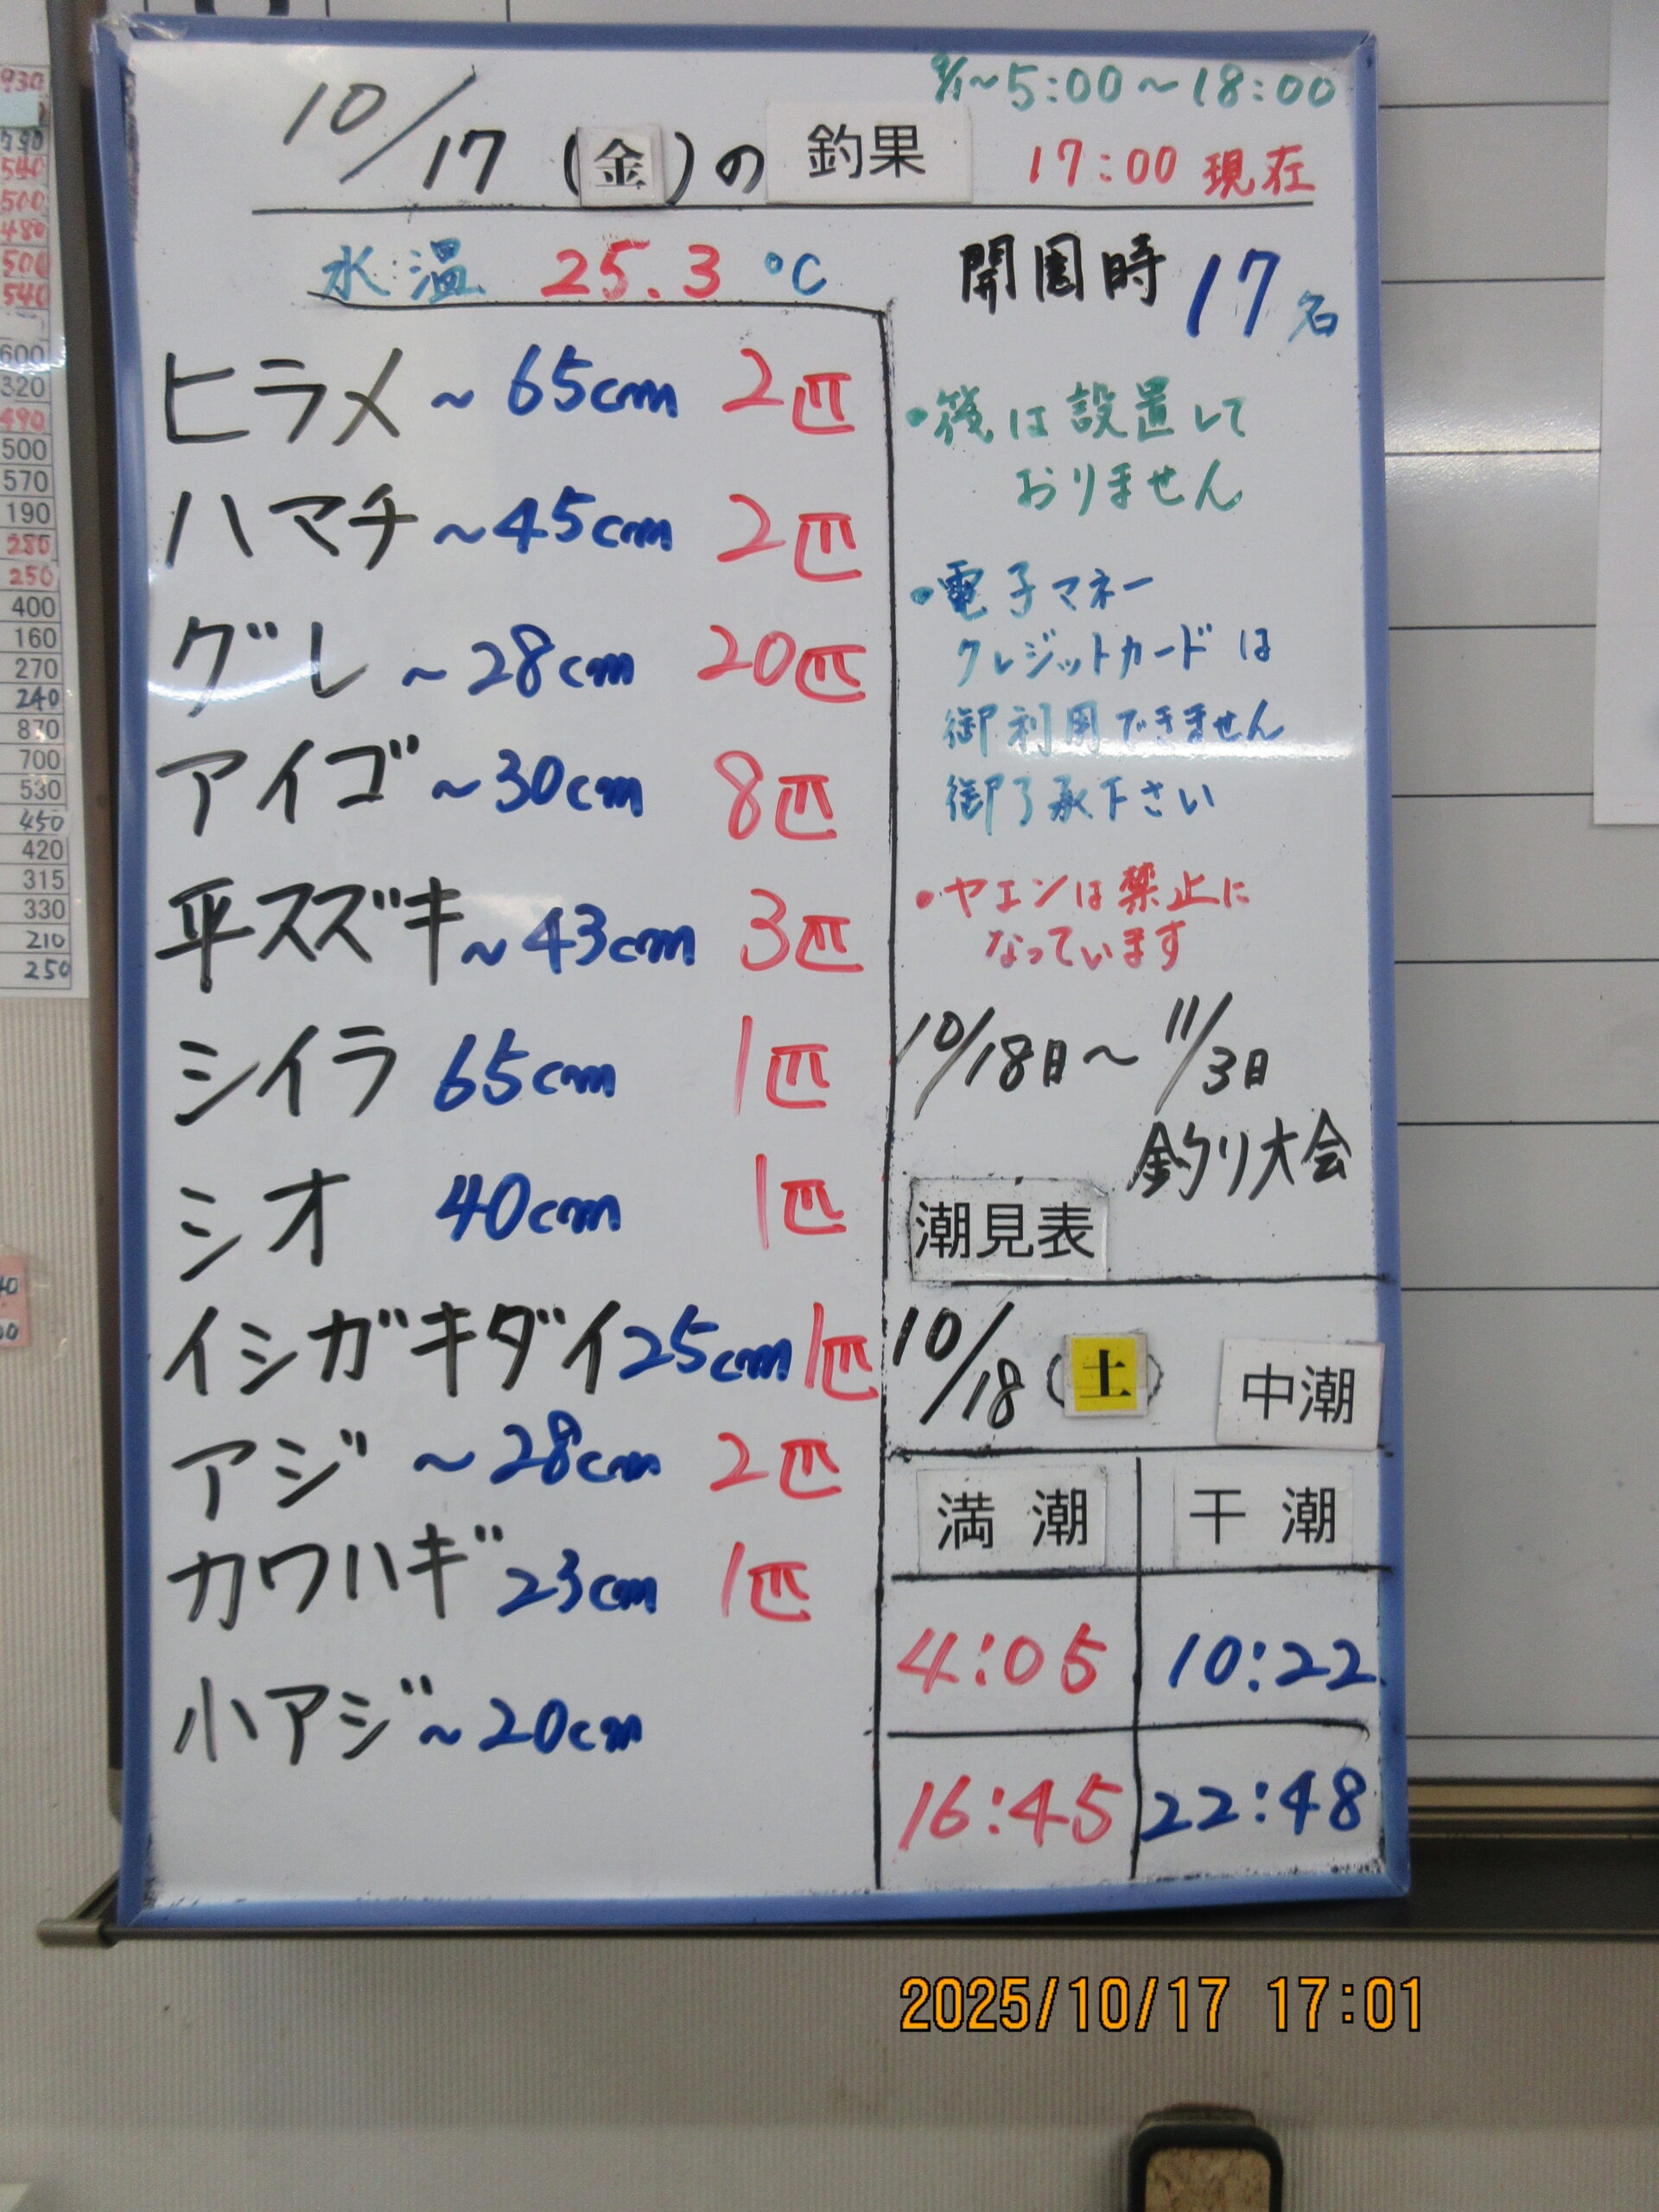 9/1~5:00~18:00
10/17(金)の釣果
17:00現在
水温 25.3℃
開園時 17名
ヒラメ~65cm 2匹
ハマチ~45cm 2匹
グレ~28cm 20匹
アイゴ~30cm 8匹
平スズキ~43cm 3匹
シイラ 65cm 1匹
シオ 40cm 1匹
イシガキダイ25cm 1匹
アジ ~28cm 2匹
カワハギ 23cm 1匹
小アジ~20cm
は設置して
おりません
・電子マネー
クレジットカードは
御利用できません
御了承下さい
・ヤエンは禁止に
なっています
10/18日~11/3日
釣り大会
潮見表
10/18(土) 中潮
満潮 干潮
4:05 10:22
16:45 22:48
930
790
540
500
480
500
540
600
320
490
500
570
190
280
250
400
160
270
240
870
700
530
450
420
315
330
210
250
2025/10/17 17:01